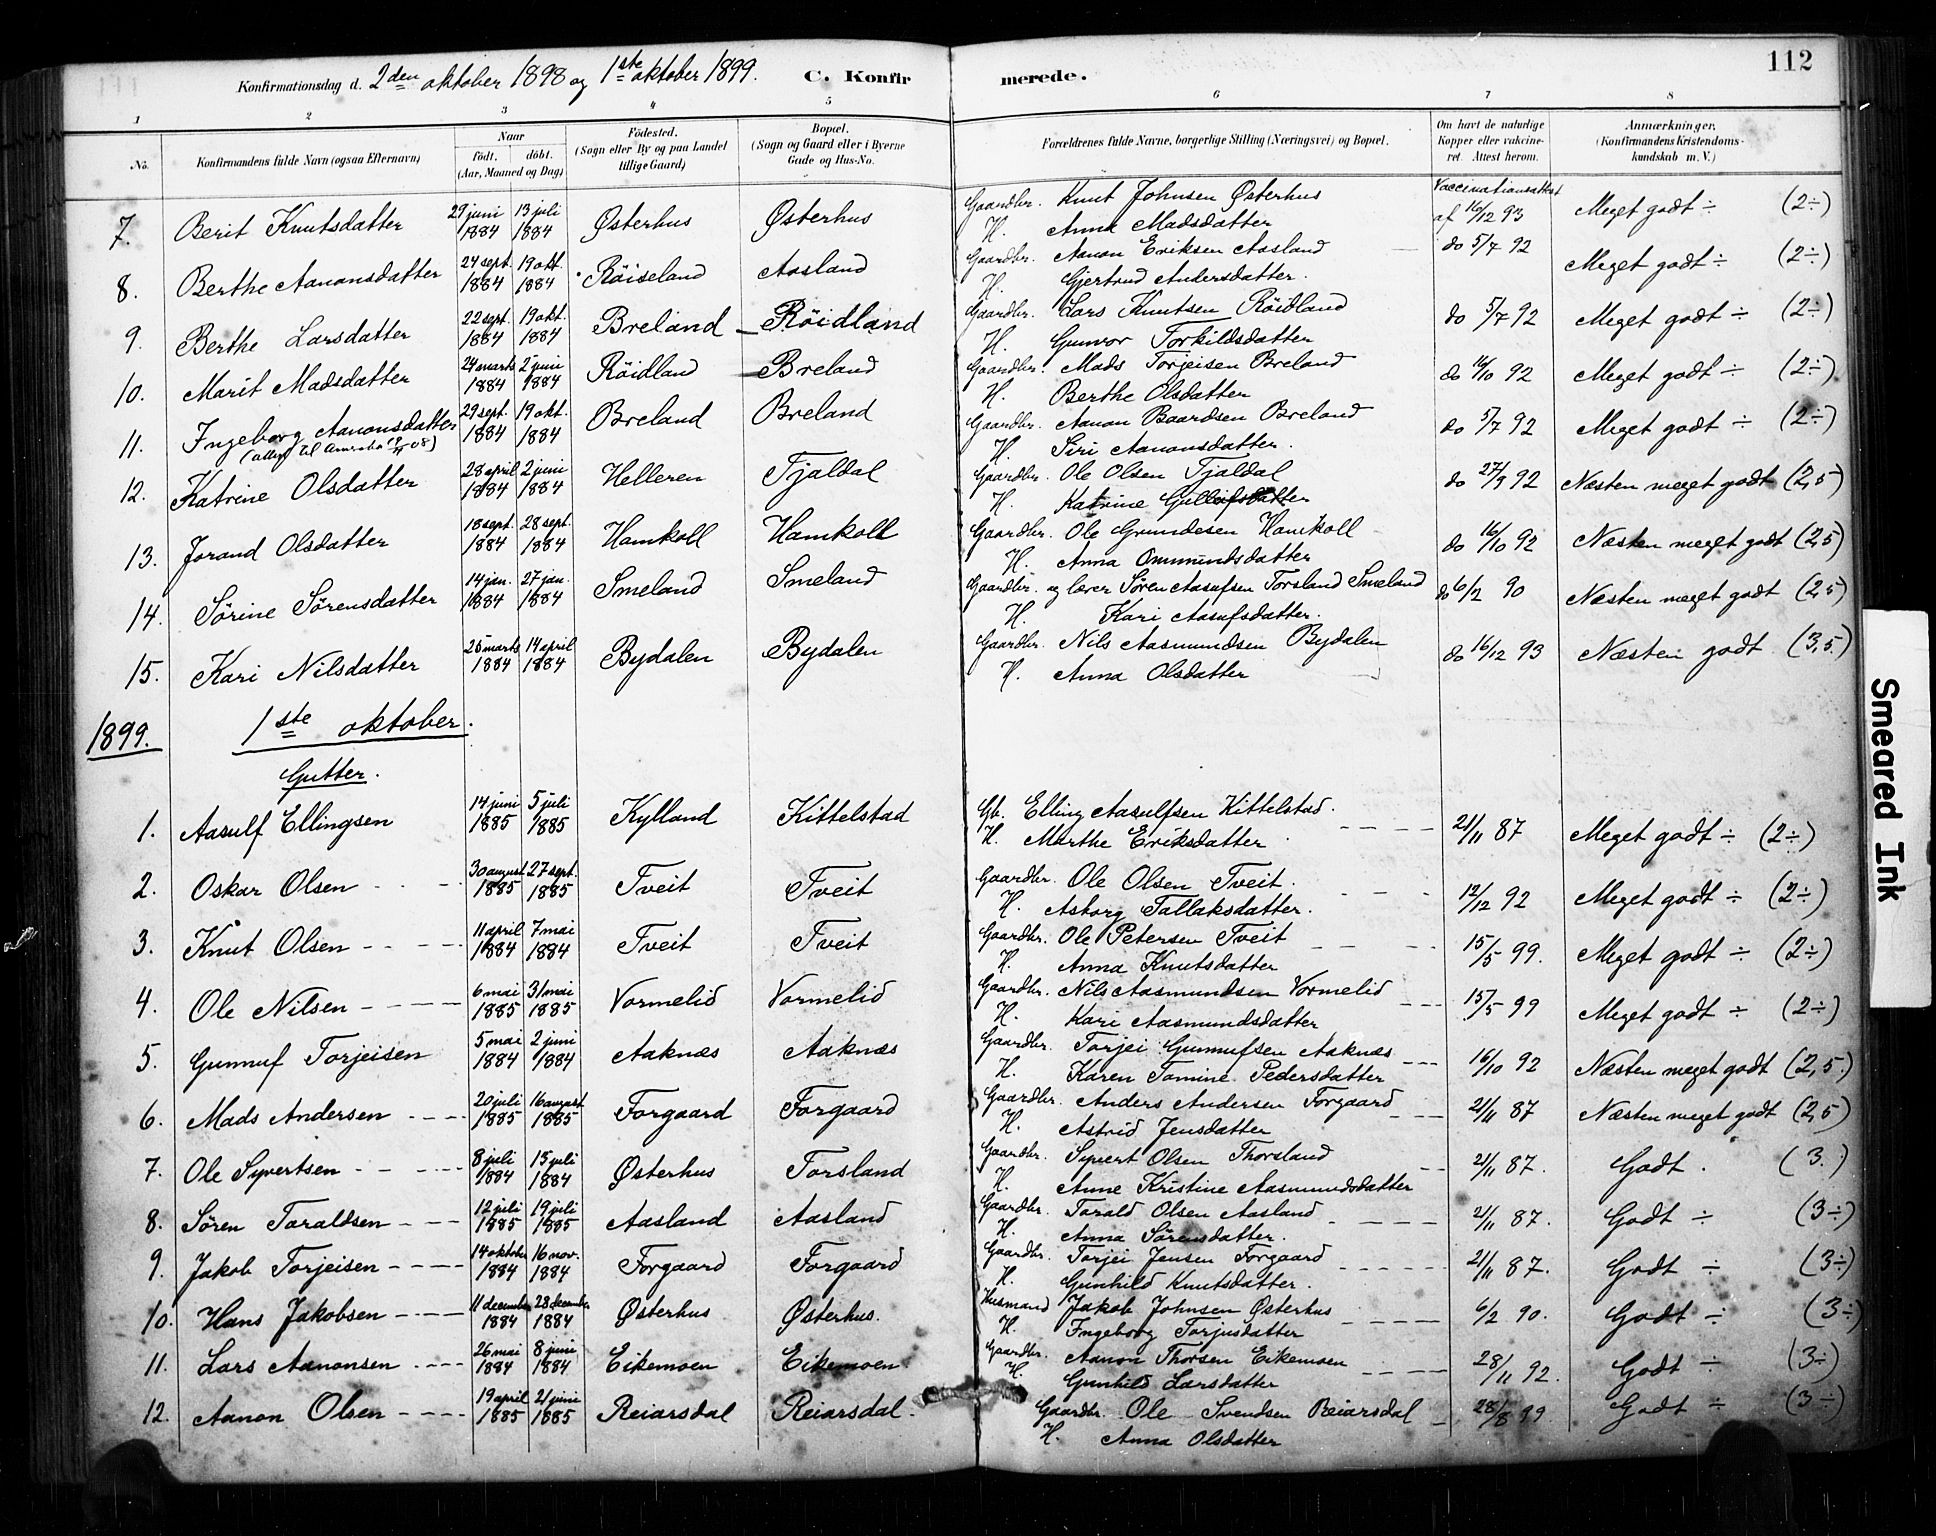 112
Konfirmationsdag d. 2den oktober 1898 og 1ste oktober 1899. C. Konfirmerede.
1 2 3 4 5 6 7 8
No. Konfirmandens fulde Navn (ogsaa Efternavn) Naar födt. döbt. (Aar, Maaned og Dag) Födested. (Sogn eller By og paa Landet tillige Gaard) Bopæl. (Sogn og Gaard eller i Byerne Gade og Hus-No. Forældrenes fulde Navne, borgerlige Stilling (Næringsvei) og Bopæl. Om havt de naturlige Kopper eller vakcineret. Attest herom. Anmærkninger. (Konfirmandens Kristendomskundskab m. V.)
7. Berit Knutsdatter 29 juni 1884 13 juli 1884 Østerhus Østerhus Gaardbr. Knut Johnsen Østerhus Vaccinationsattest af 16/12 93 Meget godt ÷ (2÷)
H. Anna Madsdatter
8. Berthe Aanonsdatter 24 sept. 1884 19 okt. 1884 Röiseland Aasland Gaardbr. Aanon Eriksen Aasland do 5/7 92 Meget godt ÷ (2÷)
H. Gjertrud Andersdatter.
9. Berthe Larsdatter 22 sept. 1884 19 okt. 1884 Breland Röidland Gaardbr. Lars Knutsen Röidland do 5/7 92 Meget godt ÷ (2÷)
H. Gunvor Torkildsdatter
10. Marit Madsdatter 24 marts 1884 2 juni 1884 Röidland Breland Gaardbr. Mads Torjeisen Breland do 16/10 92 Meget godt ÷ (2÷)
H. Berthe Olsdatter
11. Ingeborg Aanonsdatter 29 sept. 1884 19 okt. 1884 Breland Breland Gaardbr. Aanon Baardsen Breland do 5/7 92 Meget godt ÷ (2÷)
H. Siri Aanonsdatter.
12. Katrine Olsdatter 28 april 1884 2 juni 1884 Helleren Tjaldal Gaardbr. Ole Olsen Tjaldal do 92 Næsten meget godt (2,5)
H. Katrine
13. Jorand Olsdatter 18 sept. 1884 28 sept. 1884 Hamkoll Hamkoll Gaardbr. Ole Grundesen Hamkoll do 16/10 92 Næsten meget godt (2,5)
H. Anna Ommundsdatter
14. Sörine Sörensdatter 14 jan. 1884 27 jan. 1884 Smeland Smeland Gaardbr. og lærer Sören Aasufsen Torsland Smeland do 6/2 90 Næsten meget godt (2,5)
H. Kari Aasufsdatter.
15. Kari Nilsdatter 25 marts 1884 14 april 1884 Bydalen Bydalen Gaardbr. Nils Aasmundsen Bydalen do 16/12 93 Næsten godt (3,5.)
H. Anna Olsdatter
1899. 1ste oktober.
Gutter.
1. Aasulf Ellingsen 14 juni 1885 5 juli 1885 Kylland Kittelstad Gb. Elling Aasulfsen Kittelstad. 21/11 87 Meget godt ÷ (2÷)
H. Marthe Eriksdatter
2. Oskar Olsen 30 august 1885 27 sept. 1885 Tveit Tveit Gaardbr. Ole Olsen Tveit. 12/12 92 Meget godt ÷ (2÷)
H. Asborg Tallaksdatter.
3. Knut Olsen 11 april 1884 7 mai 1884 Tveit Tveit Gaardbr. Ole Petersen Tveit 15/5 99. Meget godt ÷ (2÷)
H. Anna Knutsdatter
4. Ole Nilsen 6 mai 1885 31 mai 1885 Vormelid Vormelid Gaardbr. Nils Aasmundsen Vormelid 15/5 99 Meget godt ÷ (2÷)
H. Kari Aasmundsdatter
5. Gunnuf Torjeisen 5 mai 1884 2 juni 1884 Aaknæs Aaknæs Gaardbr. Torjei Gunnufsen Aaknæs 16/10 92 Næsten meget godt (2,5.)
H. Karen Tomine Pedersdatter
6. Mads Andersen 20 juli 1885 16 august 1885 Forgaard Forgaard Gaardbr. Anders Andersen Forgaard 21/11 87 Næsten meget godt (2,5)
H. Astrid Jensdatter
7. Ole Syvertsen 8 juli 1884 15 juli 1884 Østerhus Torsland Gaardbr. Syvert Olsen Thorsland 21/11 87. Godt. (3.)
H. Anne Kristine Aasmundsdatter
8. Sören Taraldsen 12 juli 1885 19 juli 1885 Aasland Aasland Gaardbr. Tarald Olsen Aasland 21/11 87. Godt ÷ (3÷)
H. Anna Sörensdatter.
9. Jakob Torjeisen 14 oktober 1884 16 nov. 1884 Forgaard Forgaard Gaardbr. Torjei Jensen Forgaard 21/11 87. Godt ÷ (3÷)
H. Gunhild Knutsdatter.
10. Hans Jakobsen 11 december 1884 28 december 1884 Østerhus Østerhus. Husmand Jakob Johnsen Østerhus 6/2 90. Godt ÷ (3÷)
H. Ingeborg Torjusdatter
11. Lars Aanonsen 26 mai 1884 8 juni 1884 Eikemoen Eikemoen Gaardbr. Aanon Thorsen Eikemoen 28/11 92. Godt ÷ (3÷)
H. Gunhild Larsdatter
12. Aanon Olsen 19 april 1885 21 juni 1885 Reiarsdal Reiarsdal. Gaardbr. Ole Svendsen Reiarsdal 28/8 99 Godt ÷ (3÷)
H. Anna Olsdatter
Smeared Ink